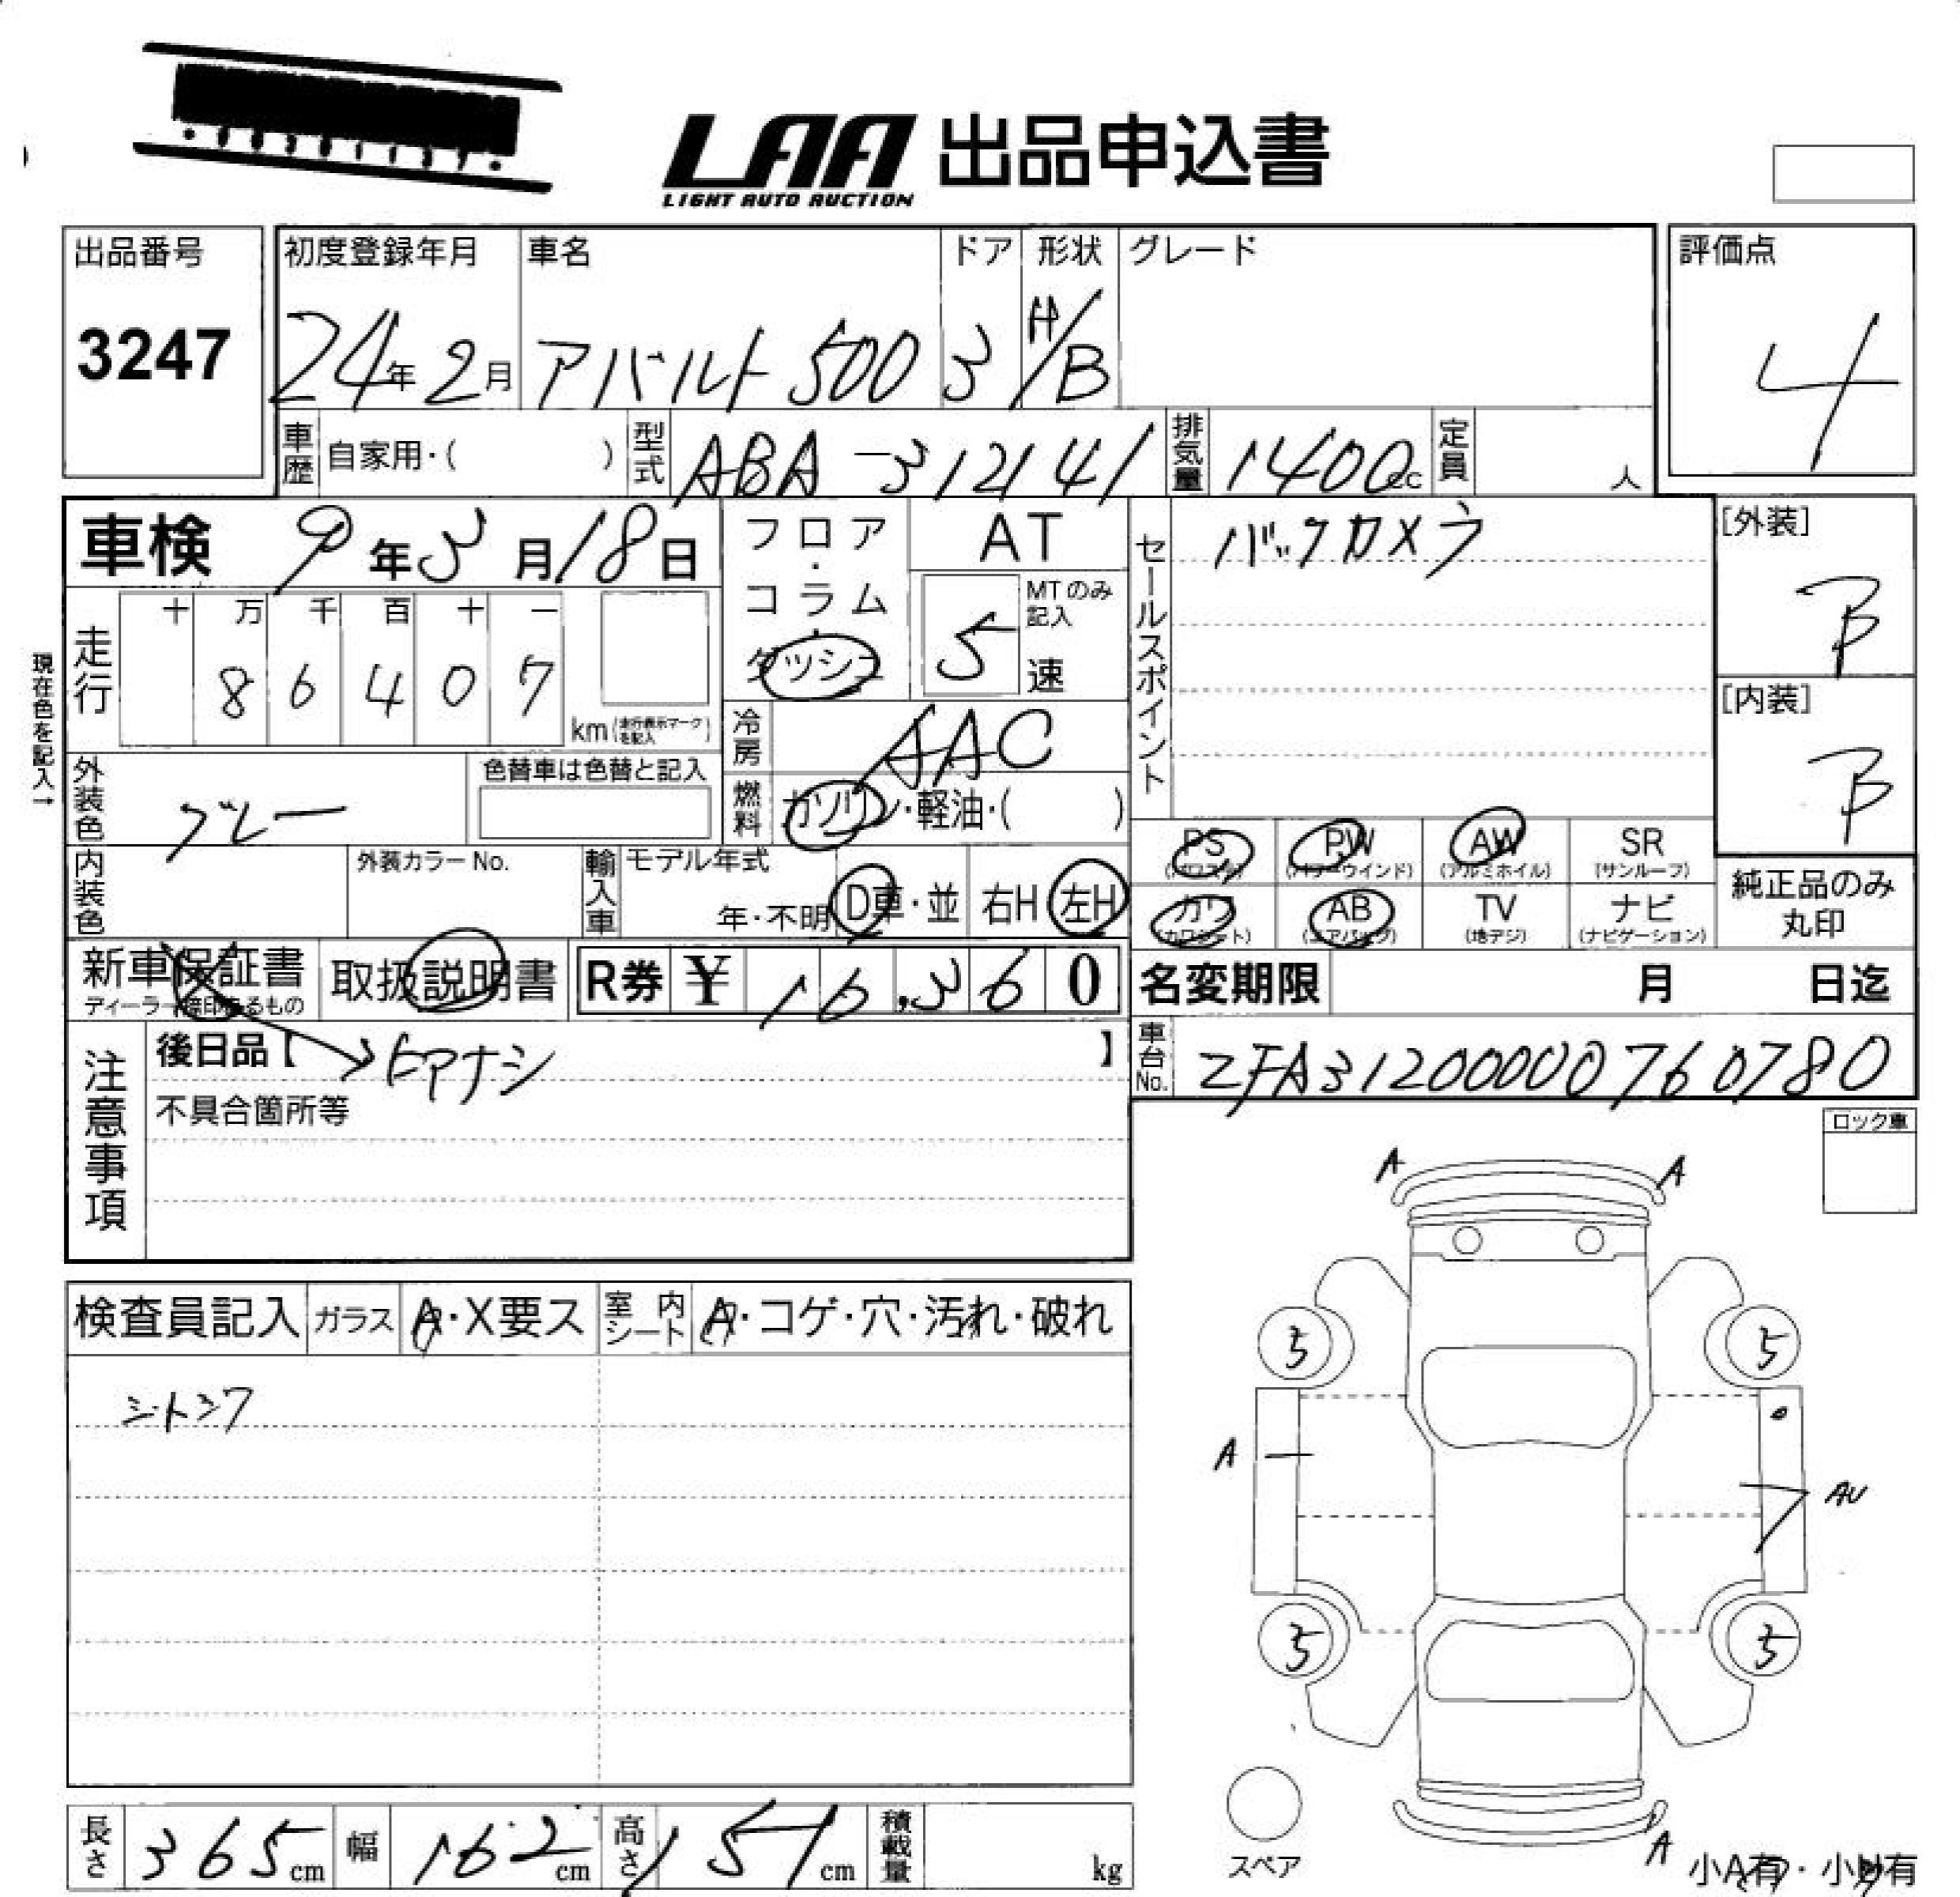 LAA 出品申込書
LIGHT AUTO AUCTION
出品番号 初度登録年月 車名 ドア 形状 グレード 評価点
3247 24年 2月 アバルト500 3 H/B 4
車歴 自家用・( ) 型式 ABA-312141 排気量 1400cc 定員 人
車検 9年3月18日 フロア・コラム・ダッシュ AT セールスポイント バックカメラ [外装]
MTのみ記入
5速
B
走行 十 万 千 百 十 一
8 6 4 0 7
km (走行表示マークを記入)
[内装]
B
現在色を記入→
冷房 AAC
外装色 グレー 色替車は色替と記入
燃料 ガソリン・軽油・( )
PS (パワステ) PW (パワーウインド) AW (アルミホイル) SR (サンルーフ)
内装色 外装カラーNo. 輸入車 モデル年式 年・不明 D車・並 右H 左H
カワ (カワシート) AB (エアバッグ) TV (地デジ) ナビ (ナビゲーション)
純正品のみ
丸印
新車保証書 取扱説明書 R券 ¥ 16,360 名変期限 月 日迄
ディーラー捺印あるもの
注意事項 後日品【 】 車台No. ZFA31200000760780
不具合箇所等
ロック車
A A
検査員記入 ガラス A・X要ス 室内シート A・コゲ・穴・汚れ・破れ
5 5
A
AU
5 5
長さ 365cm 幅 162cm 高さ 151cm 積載量 kg
スペア
A
小A有・小U有